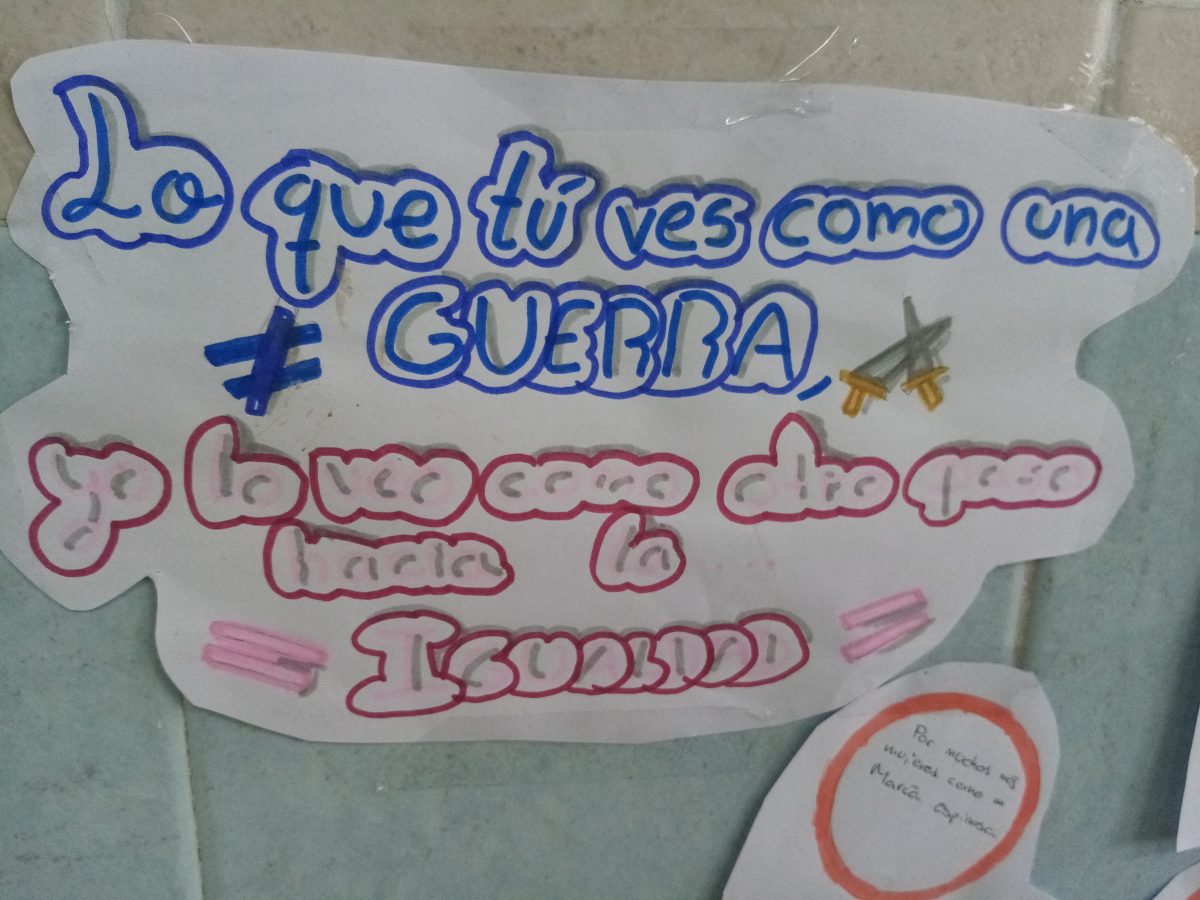 Lo que tú ves como una
≠ GUERRA,
yo lo veo como otro paso
hacia la ...
= IGUALDAD =
Por muchas más
mujeres como
María Espinosa